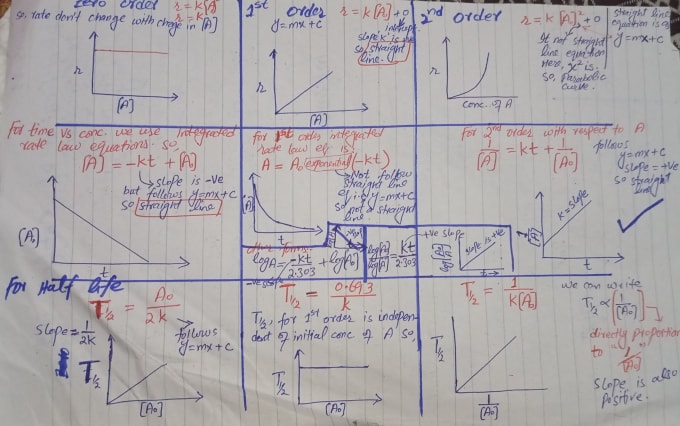 zero order r = k[A]⁰
r = k
so, rate don't change with change in [A]
r
[A]
1st order r = k[A] + 0
y = mx + c
intercept
slope 'k' is +ve
so straight
line.
r
[A]
2nd order r = k[A]² + 0
straight line
equation is
y = mx + c
It not straight
line equation
Here, x² is.
so, parabolic
curve.
r
conc. of A
For time vs conc. we use integrated
rate law equations. so,
[A] = -kt + [A₀]
slope is -ve
but follows y=mx+c
so straight line
[A₀]
t
For 1st order integrated
rate law eq is
A = A₀(exponential)(-kt)
Not follow
straight line
eq i.e y=mx+c
so not a straight
line.
[A]
t
other forms:
log A = -kt/2.303 + log[A₀]
-ve slope
log[A₀]/log[A] = kt/2.303
+ve slope
slope is +ve
t
For 2nd order with respect to A
1/[A] = kt + 1/[A₀]
follows
y = mx + c
slope = +ve
so straight
line
K = slope
1/[A]
t
For Half life
T½ = A₀/2k
slope = 1/2k
follows
y = mx + c
T½
[A₀]
T½ = 0.693/k
T½, for 1st order is indepen
dent of initial conc of A so,
T½
[A₀]
T½ = 1/k[A₀]
we can write
T½ ∝ 1/[A₀]
directly proportion
to "1/[A₀]"
slope is also
positive.
T½
1/[A₀]